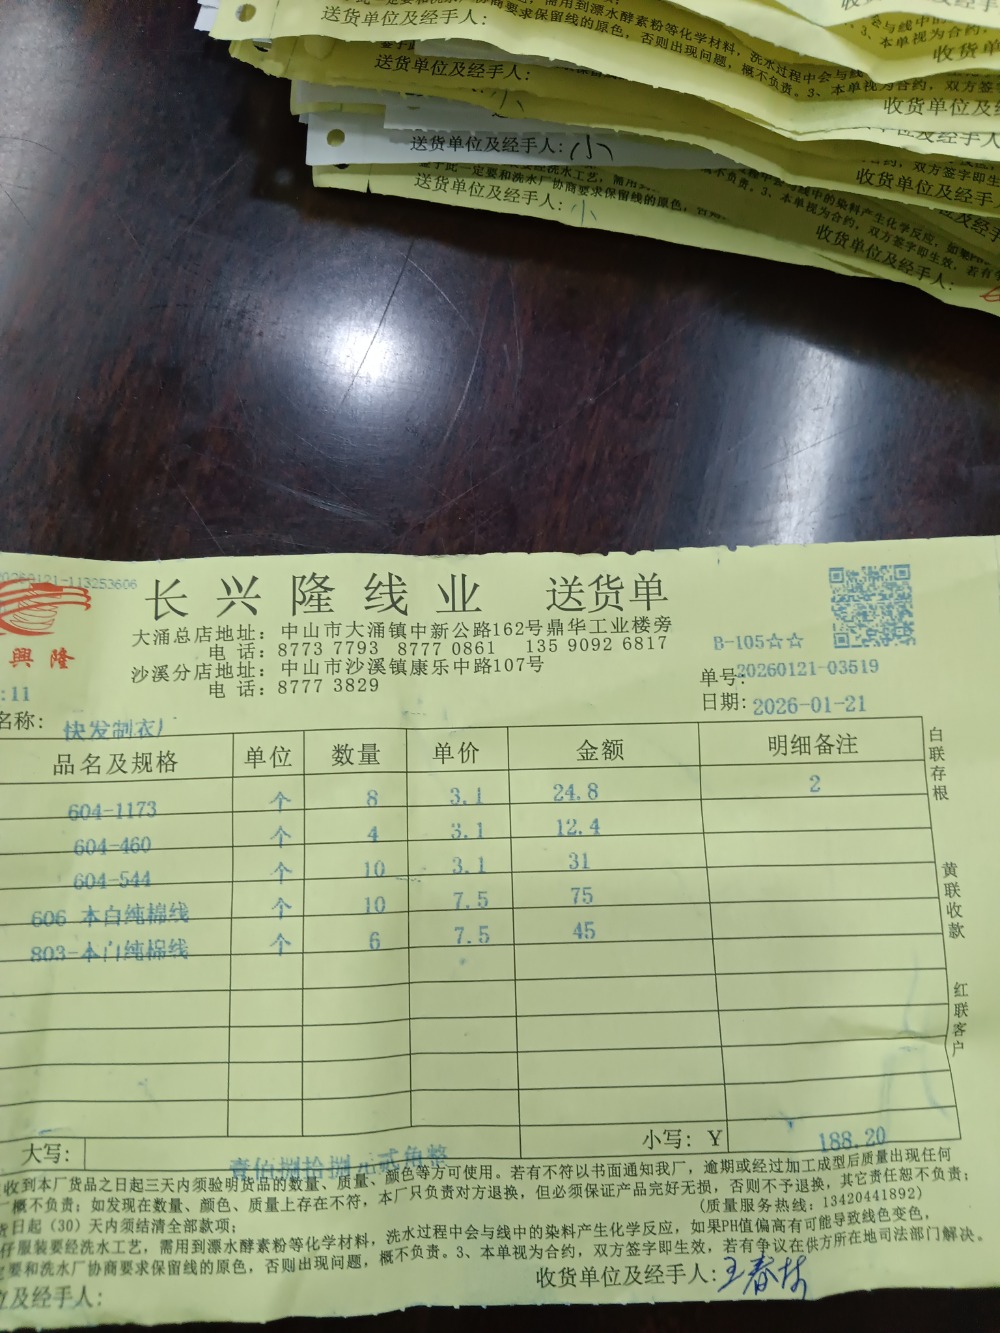 送货单位及经手人:
需用到漂水酵素粉等化学材料，洗水过程中会与线
协商要求保留线的原色，否则出现问题，概不负责。3、本单视为合约，双方签字
收货单位
送货单位及经手人:
收货单位及经手
小
送货单位及经手人: 小
收货单位及经手人
送货单位及经手人: 小
与线中的染料产生化学反应，如果PH
3、本单视为合约，双方签字即生效，若有
收货单位及经手人:
20260121-113253606
长兴隆线业 送货单
興隆
大涌总店地址：中山市大涌镇中新公路162号鼎华工业楼旁
电话：8773 7793 8777 0861 135 9092 6817
沙溪分店地址：中山市沙溪镇康乐中路107号
电话：8777 3829
B-105☆☆
单号:20260121-03519
日期:2026-01-21
:11
名称: 快发制衣厂
品名及规格 单位 数量 单价 金额 明细备注
604-1173 个 8 3.1 24.8 2
604-460 个 4 3.1 12.4
604-544 个 10 3.1 31
606 本白纯棉线 个 10 7.5 75
803-本门纯棉线 个 6 7.5 45
白联存根
黄联收款
红联客户
大写: 壹佰捌拾捌元贰角整 小写: Y 188.20
收到本厂货品之日起三天内须验明货品的数量、质量、颜色等方可使用。若有不符以书面通知我厂，逾期或经过加工成型后质量出现任何
概不负责：如发现在数量、颜色、质量上存在不符，本厂只负责对方退换，但必须保证产品完好无损，否则不予退换，其它责任恕不负责；
日起（30）天内须结清全部款项； (质量服务热线：13420441892)
仔服装要经洗水工艺，需用到漂水酵素粉等化学材料，洗水过程中会与线中的染料产生化学反应，如果PH值偏高有可能导致线色变色，
要和洗水厂协商要求保留线的原色，否则出现问题，概不负责。3、本单视为合约，双方签字即生效，若有争议在供方所在地司法部门解决。
位及经手人: 收货单位及经手人: 王春林